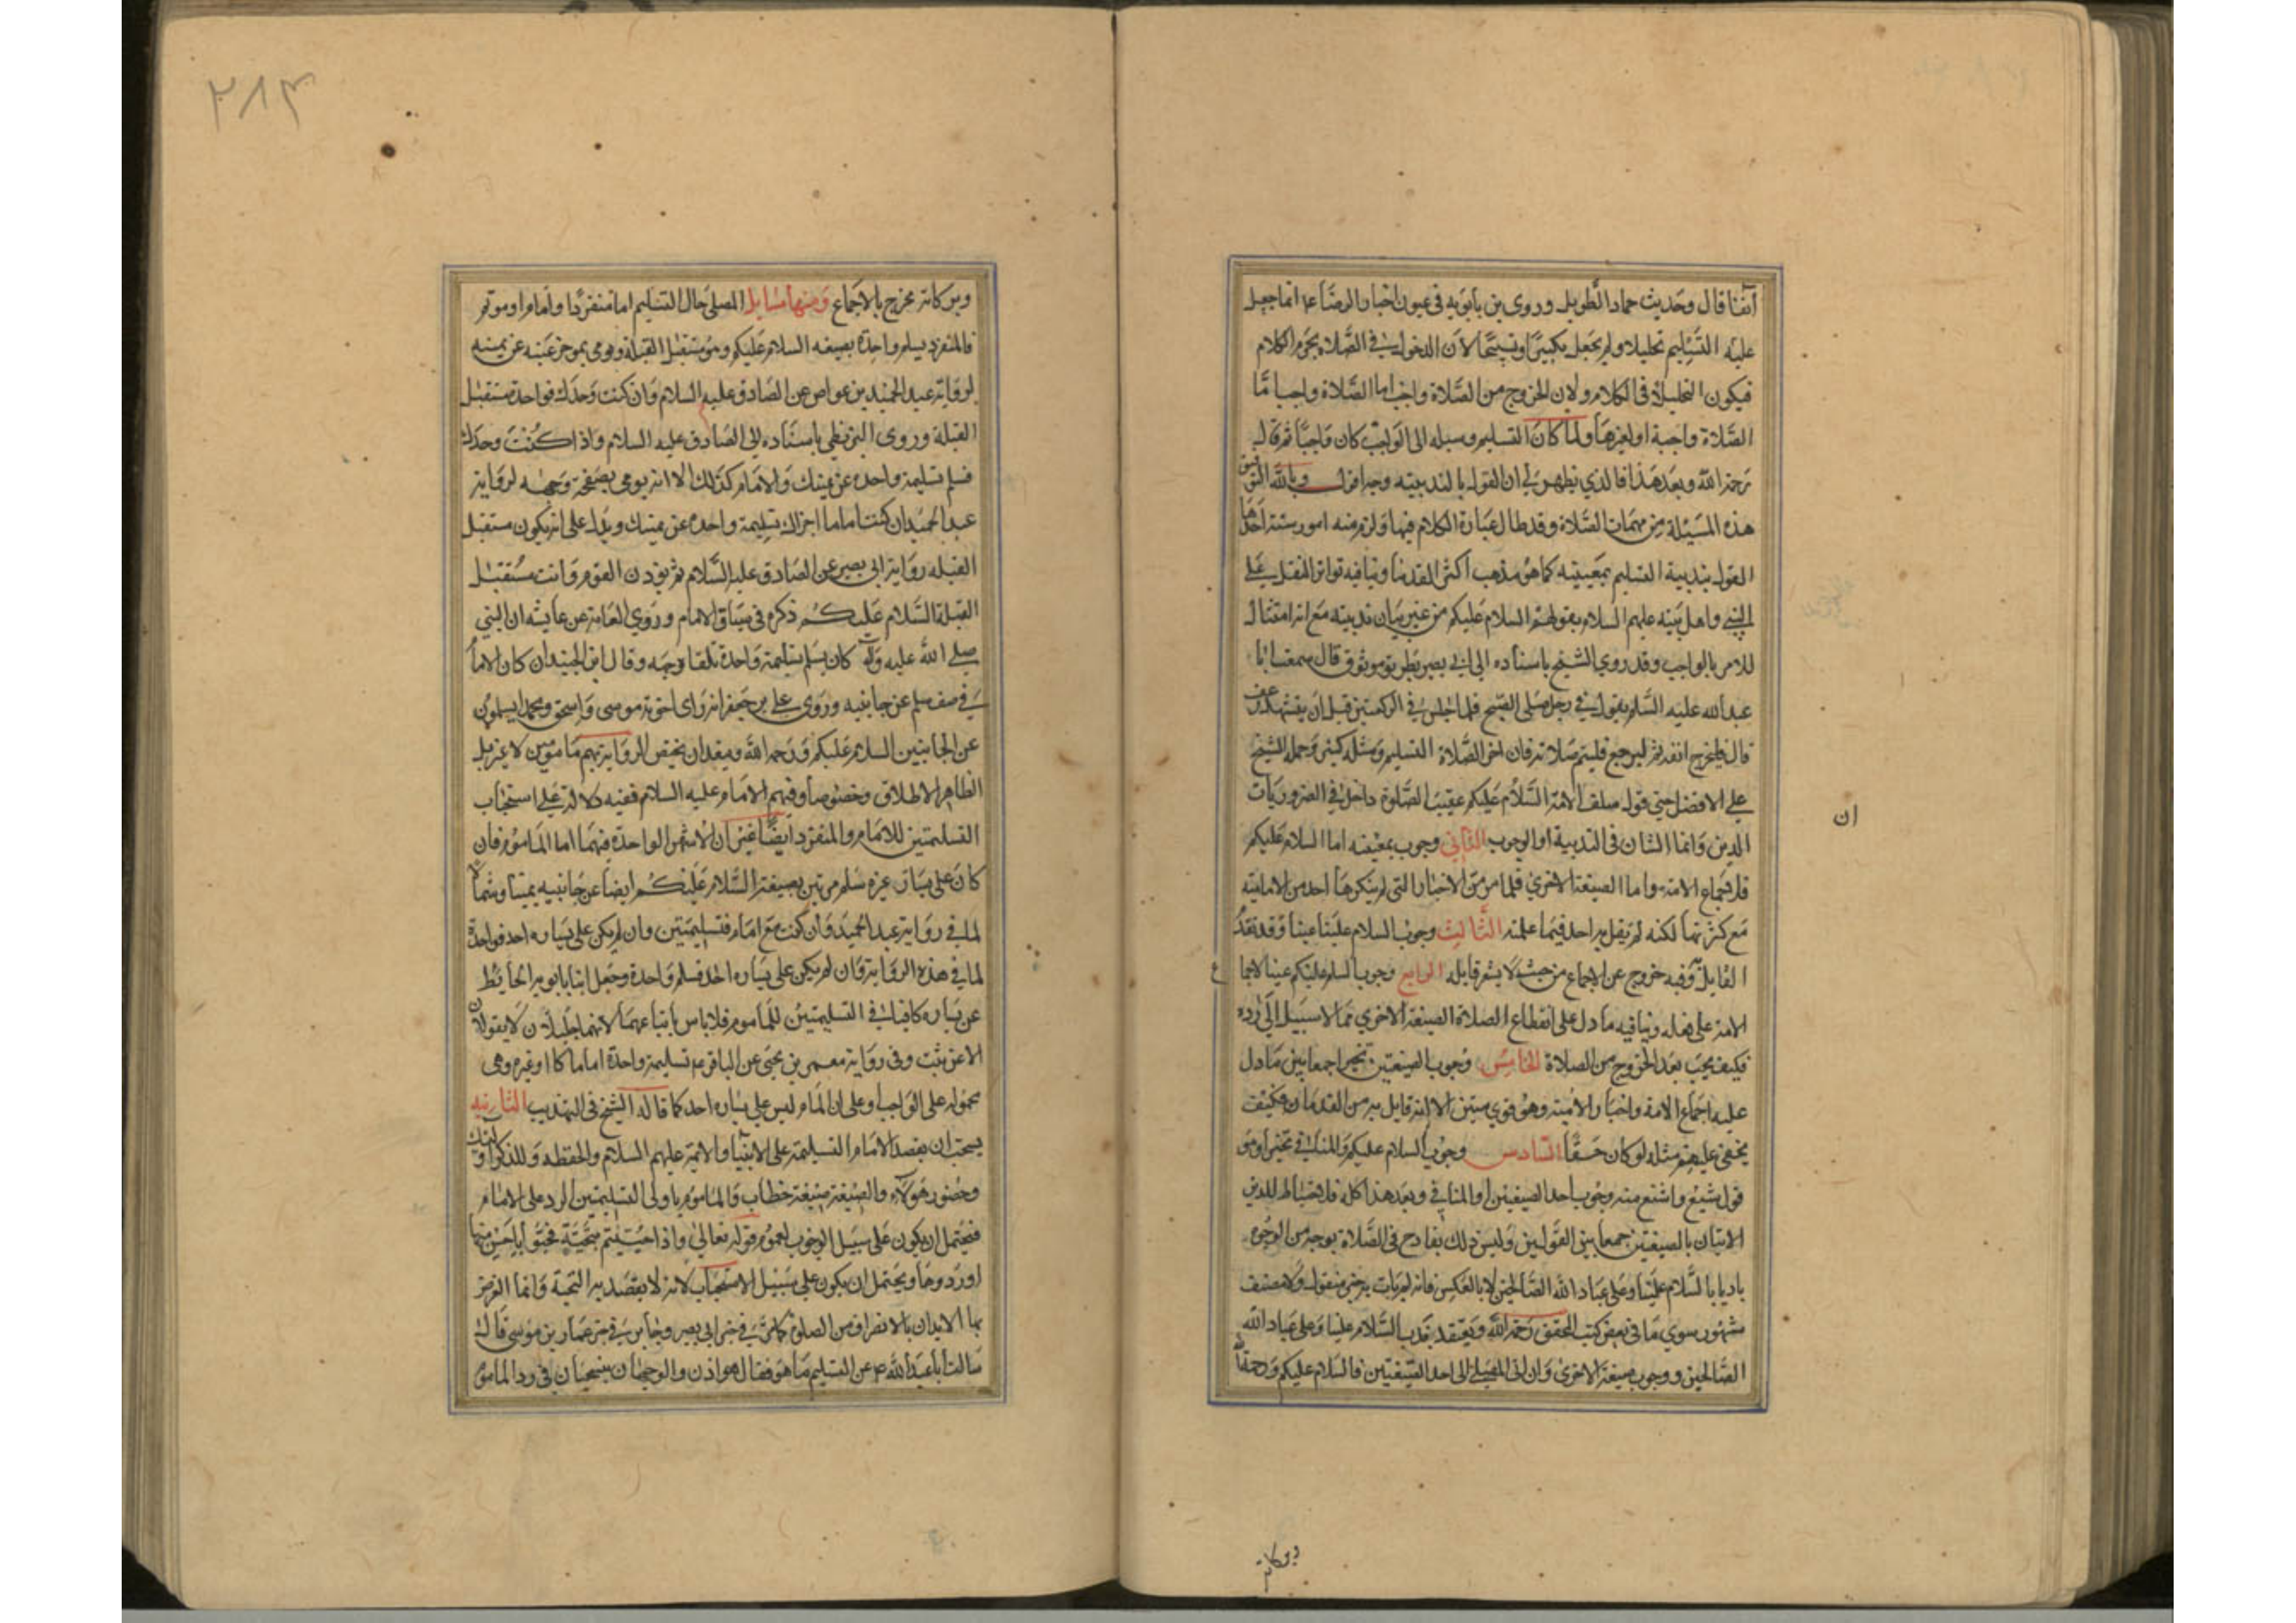 آنفا قال وحديث حماد الطويل وروى بن بابويه في عيون اخبار الرضا ع انما جعل
عليه التسليم تحليلا ولم يجعل تكبيرا وتسبيحا لان الدخول في الصلاة يحرم الكلام
فيكون التحليل في الكلام ولان الخروج من الصلاة واجب اما الصلاة واجبا ما
الصلاة واجبة او لغيرها ولما كان التسليم وسيله الى الواجب كان واجبا ثم قال
رحمه الله وبعد هذا فالذي يظهر لي ان القول بالندبيته وجه اقول وبالله التوفيق
هذه المسئلة من مهمات الصلاة وقد طال عبارة الكلام فيها ولزم منه امور ستة احدها
القول بندبية التسليم بمعينيه كما هو مذهب اكثر القدما وينافيه تواتر النقل على
النبي واهل بيته عليهم السلام بقولهم السلام عليكم من غير بيان ندبيته مع انه امتثال
للامر بالواجب وقد روى الشيخ باسناده الى ابي بصير بطريق موثوق قال سمعت ابا
عبد الله عليه السلام يقول في رجل صلى الصبح فلما جلس في الركعتين قبل ان يتشهد رعف
قال فليخرج انفه ثم ليرجع فليتم صلاته فان اخر الصلاة التسليم ومثله كثير وحمله الشيخ
على الافضل حتى قوله سلف الامة السلام عليكم عقيب الصلوة داخل في الضروريات
الدين وانما الشان في الندبية او الوجوب الثاني وجوب بمعينه اما السلام عليكم
فلاجماع الامة واما الصيغة الاخرى فلما مر من الاخبار التي لم ينكرها احد من الامامية
مع كثرتها لكنه لم يقل به احد فيما علمته الثالث وجوب السلام علينا عينا وقد تقدم
القايل وفيه خروج عن الاجماع من حيث لا يشعر قايله الرابع وجوب السلم عليكم عينا لاجماع
الامة على فعله وينافيه ما دل على انقطاع الصلاة الصيغة الاخرى مما لا سبيل الى رده
فكيف يجب بعد الخروج من الصلاة الخامس وجوب الصيغتين تخيرا جمعا بين ما دل
عليه اجماع الامة واخبار الامية وهو قوي متين الا انه لا قايل به من القدما وكيف
يخفى عليهم مثله لو كان حقا السادس وجوب السلام عليكم والمنافي تخيرا وهو
قول شنيع واشنع منه وجوب احدا الصيغتين او المنافي وبعد هذا كله فالاحتياط للدين
الاتيان بالصيغتين جمعا بين القولين وليس ذلك بقادح في الصلاة بوجه من الوجوه
باديا بالسلام علينا وعلى عباد الله الصالحين لا بالعكس فانه لم يات به خبر منقول ولا مصنف
مشهور سوى ما في بعض كتب المحقق رحمه الله ويعتقد ندب السلام علينا وعلى عباد الله
الصالحين ووجوب صيغة الاخرى وان ابى المصلي الا احدا الصيغتين فالسلام عليكم ورحمة الله
ان
وبركاته
٢٨٣
وبركاته مخرج بالاجماع ومنها مسايل المصلي حال التسليم اما منفردا واماما او موتم
فالمنفرد يسلم واحدة بصيغه السلام عليكم وهو مستقبل القبلة ويومى بموخر عينه عن يمينه
لرواية عبد الحميد بن عواض عن الصادق عليه السلام وان كنت وحدك فواحدة مستقبل
القبلة وروى البزنطي باسناده الى الصادق عليه السلام واذا كنت وحدك
فسلم تسليمة واحده عن يمينك والامام كذلك الا انه يومى بصفحة وجهه لرواية
عبد الحميد ان كنت اماما اجزاك تسليمة واحدة عن يمينك ويدل على انه يكون مستقبل
القبله رواية ابي بصير عن الصادق عليه السلام ثم يؤذن القوم وانت مستقبل
القبلة السلام عليكم ذكره في سياق الامام وروى العامة عن عايشه ان النبي
صلى الله عليه وآله كان يسلم تسليمة واحدة تلقا وجهه وقال ابن الجنيد ان كان الامام
في صف سلم عن جانبيه وروى علي بن جعفر انه راى اخوته موسى واسحق ومحمد يسلمون
عن الجانبين السلام عليكم ورحمه الله ويبعد ان يختص الرواية بهم مامومين لا غير بل
الظاهر الاطلاق وخصوصا وفيهم الامام عليه السلام ففيه دلالة على استحباب
التسليمتين للامام والمنفرد ايضا غير ان الاشهر الواحدة فيهما اما الماموم فان
كان على يساره غيره سلم مرتين بصيغة السلام عليكم ايضا عن جانبيه يمينا وشمالا
لما في رواية عبد الحميد وان كنت مع امام فتسليمتين وان لم يكن على يساره احد فواحدة
لما في هذه الرواية فان لم يكن على يساره احد فسلم واحدة وجعل ابنا بابويه الحايط
عن يساره كافيا في التسليمتين للماموم فلا باس باتباعهما لانهما جليلان لا يقولان
الا عن ثبت وفي رواية معمر بن يحيى عن الباقر ع تسليمة واحدة اماما كان او غيره وهى
محموله على الواجب وعلى ان المام ليس على يساره احد كما قاله الشيخ في التهذيب الثانيه
يستحب ان يقصد الامام التسليمة على الانبيا والائمة عليهم السلام والحفظه وللذكر اولئك
وحضور هؤلاء والصيغة صيغة خطاب والماموم باولى التسليمتين الرد على الامام
فيحتمل ان يكون على سبيل الوجوب لعموم قوله تعالى واذا حييتم بتحية فحيوا باحسن منها
او ردوها ويحتمل ان يكون على سبيل الاستحباب لانه لا يقصد به التحية وانما الغرض
بها الايذان بالانصراف من الصلوة كما مر في خبر ابي بصير وجا مر في خبر عمار بن موسى قال
سالت ابا عبد الله ع عن التسليم ما هو فقال هو اذن والوجهان ينسحبان في رد الماموم